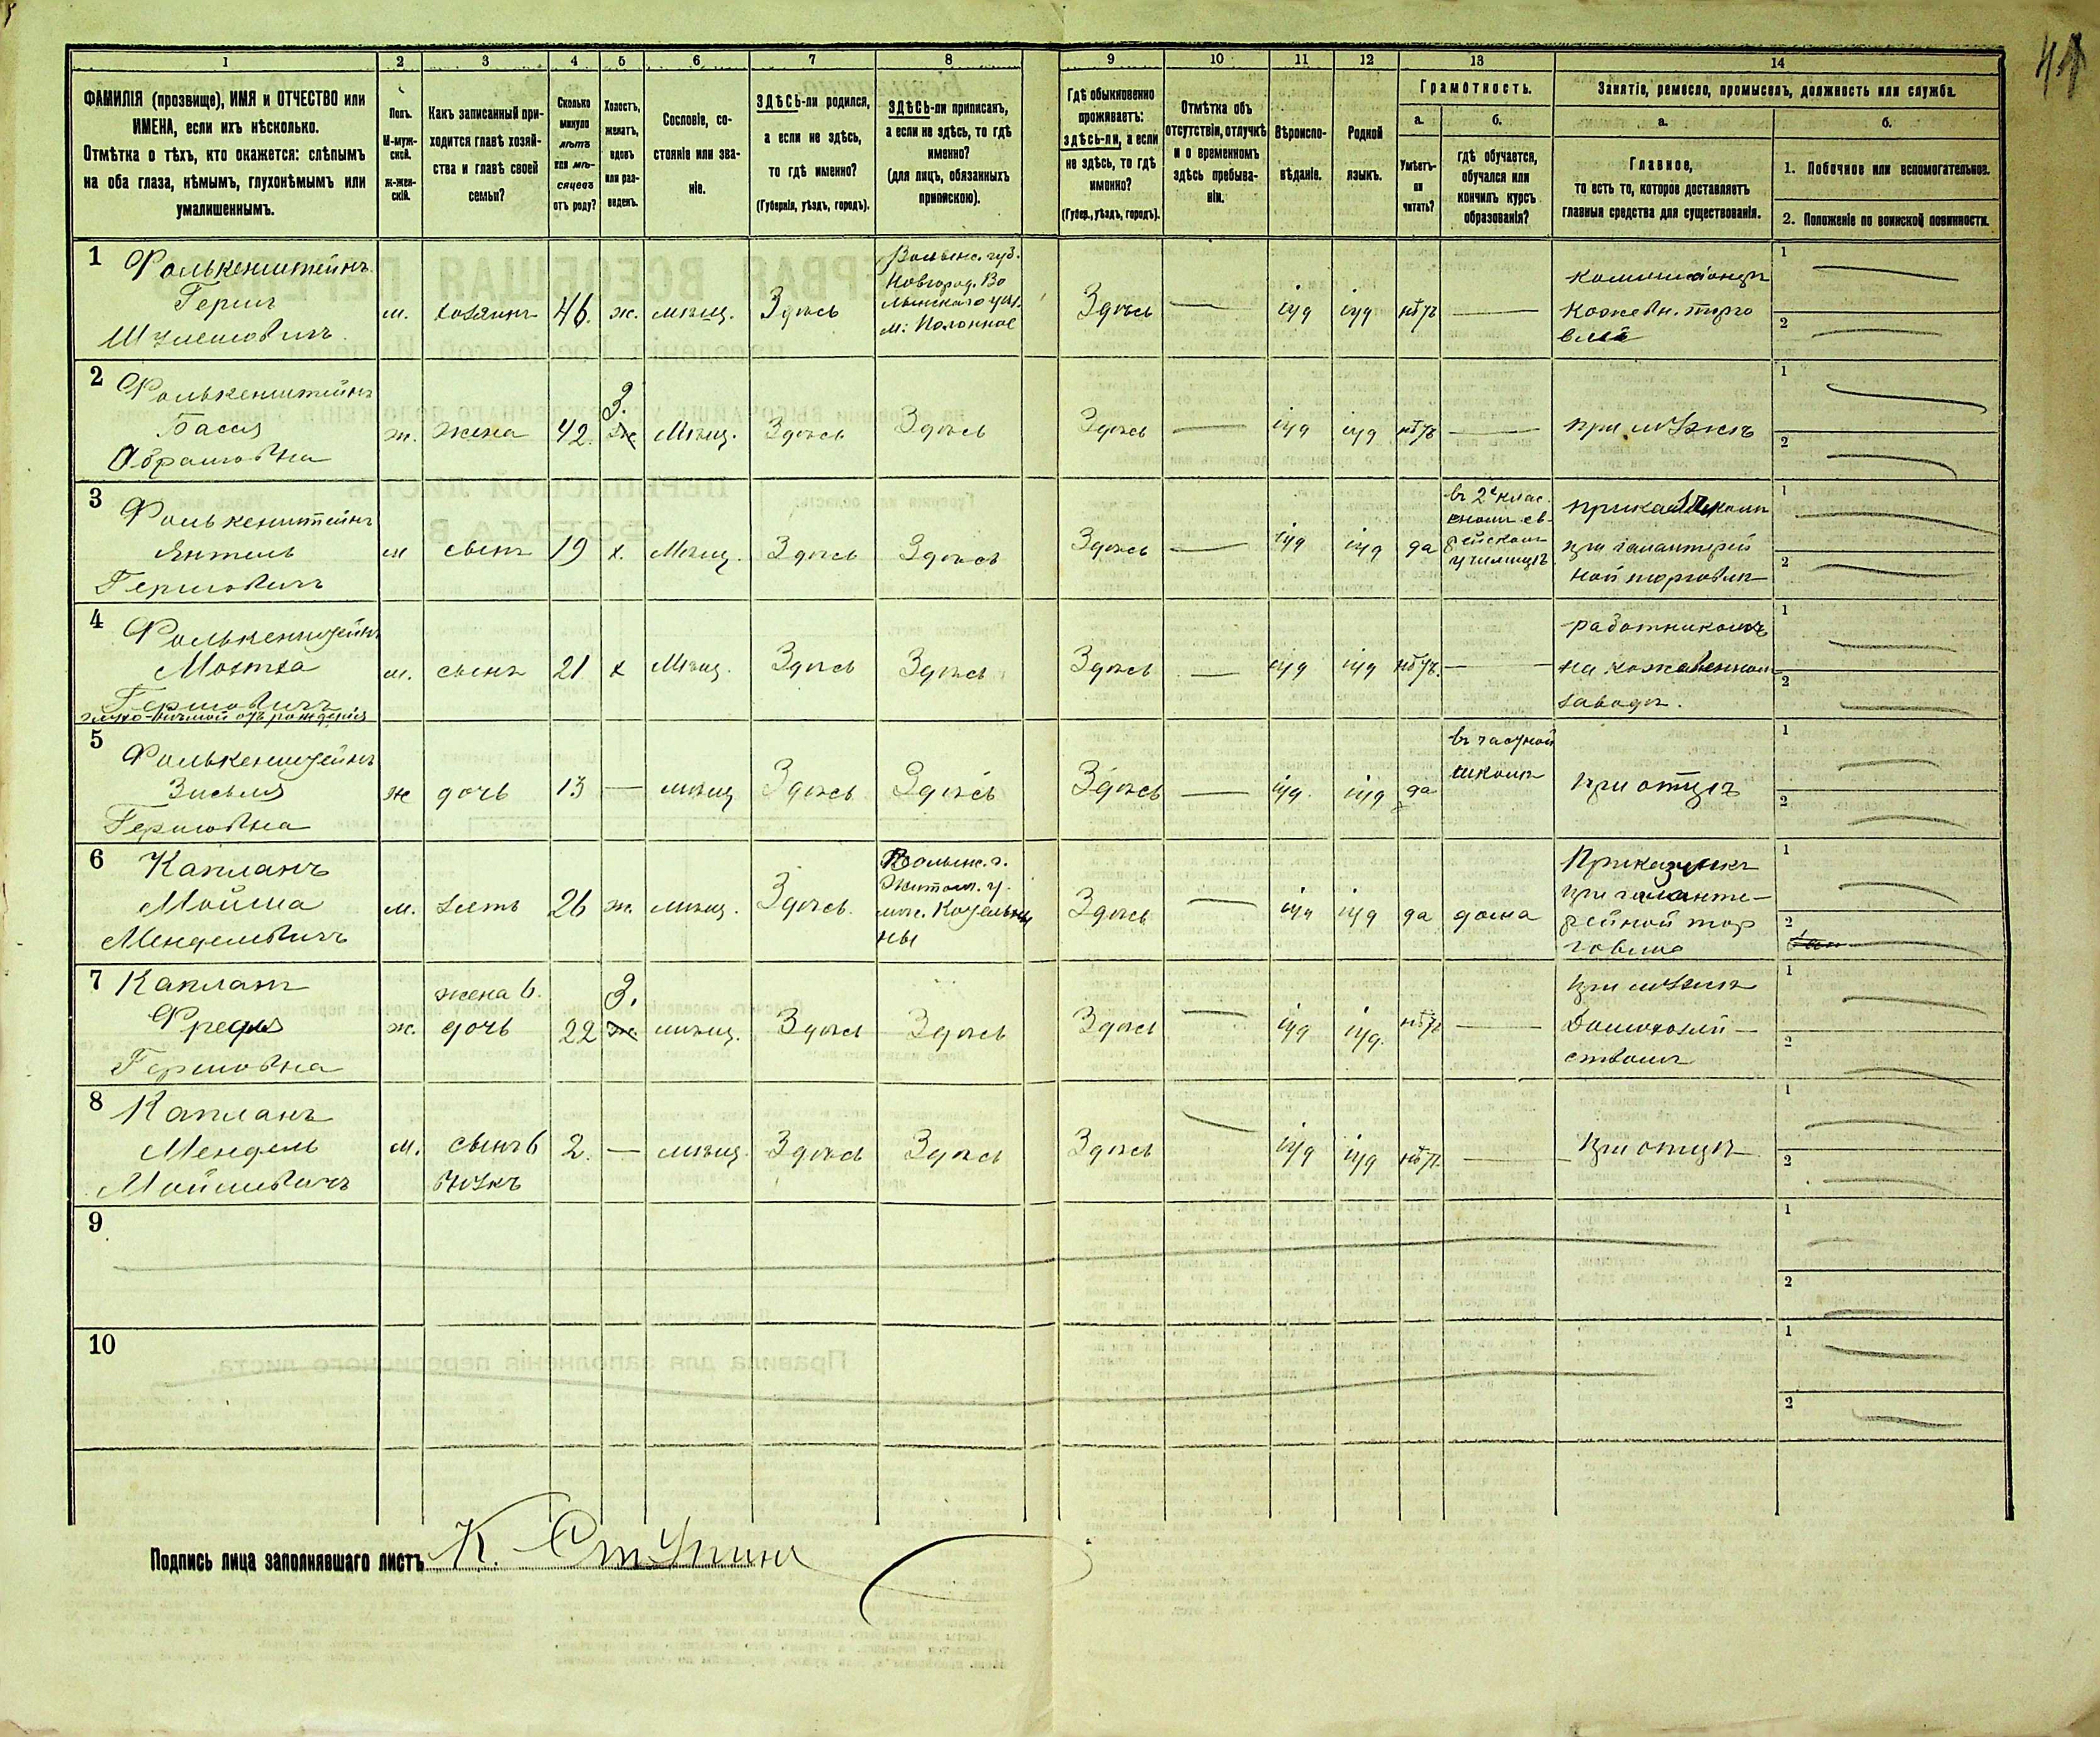 41
1 2 3 4 5 6 7 8 9 10 11 12 13 14
ФАМИЛІЯ (прозвище), ИМЯ и ОТЧЕСТВО или
ИМЕНА, если ихъ нѣсколько.
Отмѣтка о тѣхъ, кто окажется: слѣпымъ
на оба глаза, нѣмымъ, глухонѣмымъ или
умалишеннымъ.
Полъ.
М-муж-
ской.
ж-жен-
скій.
Какъ записанный при-
ходится главѣ хозяй-
ства и главѣ своей
семьи?
Сколько
минуло
лѣтъ
или мѣ-
сяцевъ
отъ роду?
Холостъ,
женатъ,
вдовъ
или раз-
веденъ.
Сословіе, со-
стояніе или зва-
ніе.
ЗДѢСЬ-ли родился,
а если не здѣсь,
то гдѣ именно?
(Губернія, уѣздъ, городъ).
ЗДѢСЬ-ли приписанъ,
а если не здѣсь, то гдѣ
именно?
(для лицъ, обязанныхъ
припискою).
Гдѣ обыкновенно
проживаетъ:
здѣсь-ли, а если
не здѣсь, то гдѣ
именно?
(Губер., уѣздъ, городъ).
Отмѣтка объ
отсутствіи, отлучкѣ
и о временномъ
здѣсь пребыва-
ніи.
Вѣроиспо-
вѣданіе.
Родной
языкъ.
Грамотность.
а.
Умѣетъ-
ли
читать?
б.
гдѣ обучается,
обучался или
кончилъ курсъ
образованія?
Занятіе, ремесло, промыселъ, должность или служба.
а.
Главное,
то есть то, которое доставляетъ
главныя средства для существованія.
б.
1. Побочное или вспомогательное.
2. Положеніе по воинской повинности.
1 Фолькенштейнъ
Герш
Шулемовичъ
м. хозяинъ 46. ж. мѣщ. Здѣсь
Волынс. губ.
Новград. Во
лынскаго уѣз.
м: Полонное
Здѣсь — іуд іуд нѣтъ —
комиссіонеръ
Кожевн. торго
влѣ
1
2
2 Фолькенштейнъ
Бася
Абрамовна
ж. жена 42. З. ж Мѣщ. Здѣсь Здѣсь Здѣсь — іуд іуд нѣтъ — при мужѣ
1
2
3 Фолькенштейнъ
Янтель
Гершовичъ
м сынъ 19 х. Мѣщ. Здѣсь Здѣсь Здѣсь — іуд іуд да
въ 2х клас.
сномъ ев-
рейскомъ
училищѣ
приказчикомъ
при галантерей
ной торговлѣ
1
2
4 Фолькенштейнъ
Мотха
Гершовичъ
глухо-нѣмой отъ рожденія
м. сынъ 21 х Мѣщ. Здѣсь Здѣсь Здѣсь — іуд іуд нѣтъ. —
работникомъ
на кожевенномъ
заводѣ.
1
2
5 Фолькенштейнъ
Зисля
Гершовна
ж дочь 13 — мѣщ Здѣсь Здѣсь Здѣсь — іуд. іуд да
въ частной
школѣ
при отцѣ
1
2
6 Капланъ
Мойша
Менделевичъ
м. зять 26 ж. мѣщ. Здѣсь.
Волынс. г.
Житом. у.
мѣс. Кодельны
ны
Здѣсь — іуд іуд да дома
Приказчикъ
при галанте-
рейной тор
говлѣ
1
2
7 Капланъ
Фредя
Гершовна
ж. жена 6. дочь 22 З. ж мѣщ. Здѣсь Здѣсь Здѣсь — іуд іуд. нѣтъ —
при мужѣ
Домохозяй-
ствомъ
1
2
8 Капланъ
Мендель
Мойшевичъ
м. сынъ 6 внукъ 2. — мѣщ. Здѣсь Здѣсь Здѣсь — іуд іуд нѣтъ. — при отцѣ
1
2
9
1
2
10
1
2
Подпись лица заполнявшаго листъ К. Ступинъ